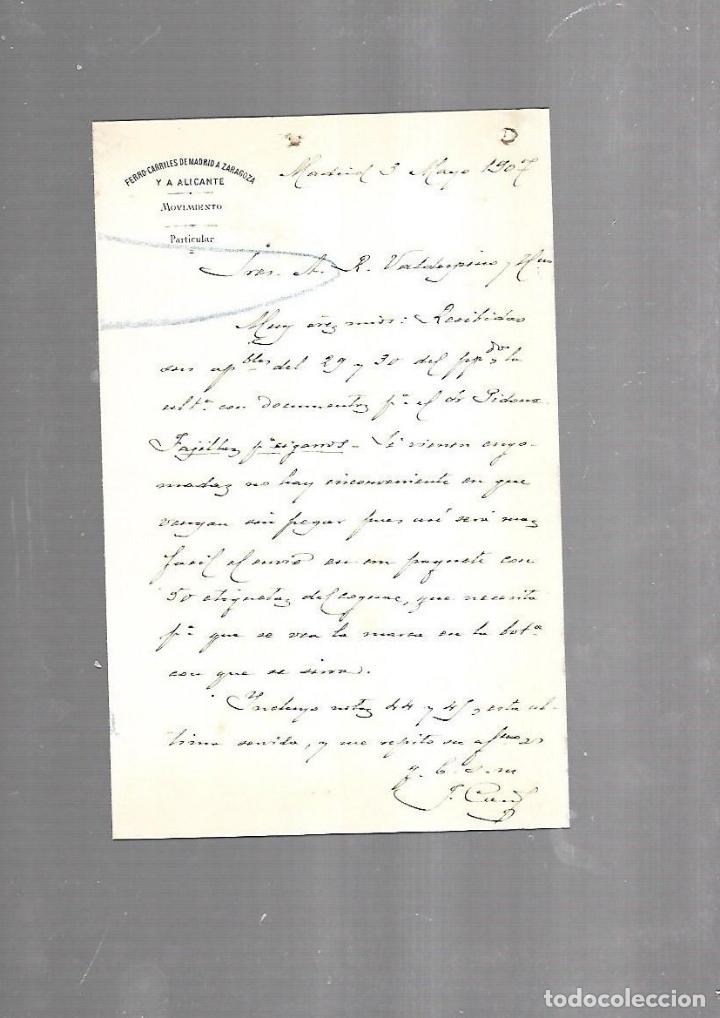 FERRO-CARRILES DE MADRID A ZARAGOZA
Y A ALICANTE
MOVIMIENTO
Particular
Madrid 3 Mayo 1907
Sres. A. R. Valdespino y Hno
Muy Sres mios: Recibidas
sus apbles del 29 y 30 del ppdo, la
ultª con documentos pª el Sr
Fajillas pª cigarros - Si vienen engo-
madas no hay inconveniente en que
vengan sin pegar pues asi será mas
facil el envio en un paquete con
50 etiquetas del cognac, que necesita
pª que se vea la marca en la botª
con que se sirva.
Incluyo notas 44 y 45, esta ul-
tima servida, y me repito su afmo
q. b. s. m
J.
todocoleccion.net